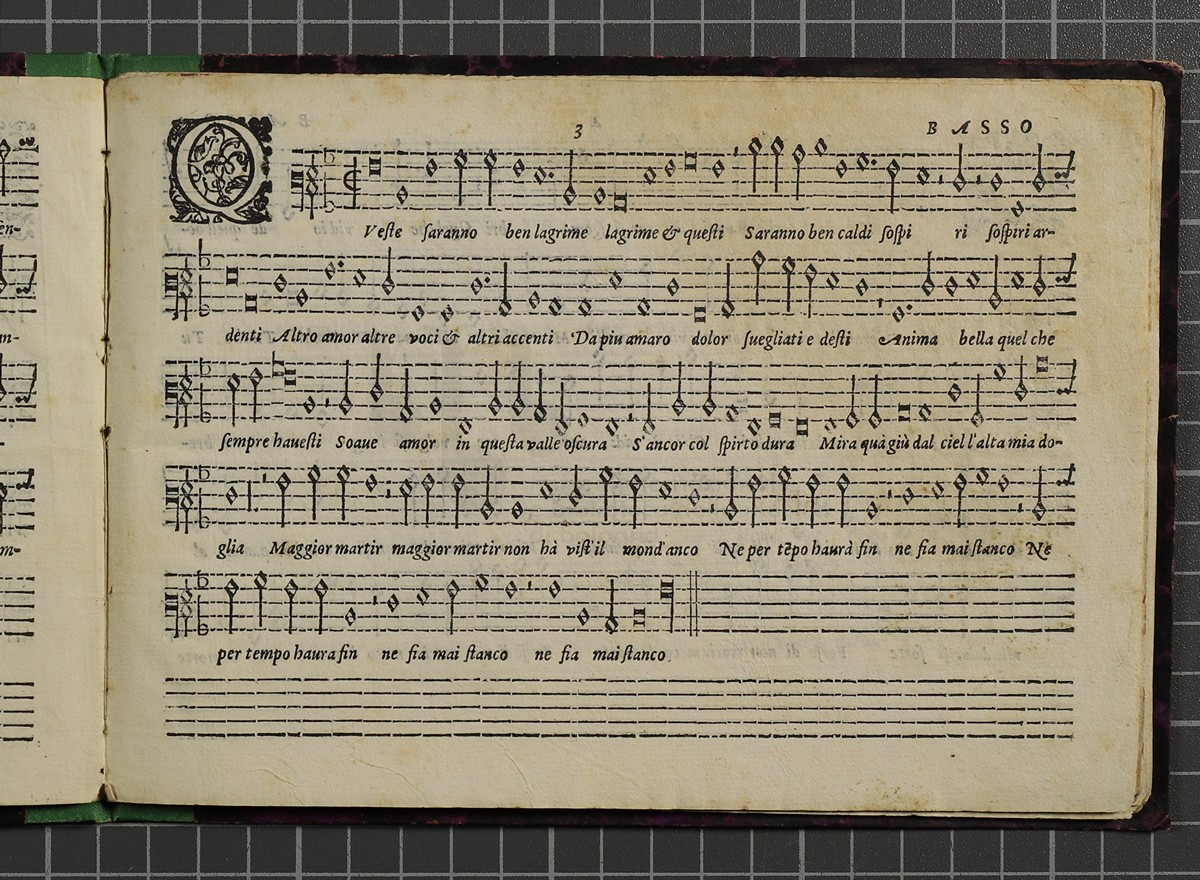 3
B A S S O
QVeste saranno ben lagrime lagrime & questi Saranno ben caldi sospi ri sospiri ar-
denti Altro amor altre voci & altri accenti Da piu amaro dolor suegliati e desti Anima bella quel che
sempre hauesti Soaue amor in questa valle oscura S'ancor col spirto dura Mira quà giù dal ciel l'alta mia do-
glia Maggior martir maggior martir non hà vist'il mond'anco Ne per tẽpo haurà fin ne fia mai stanco Ne
per tempo haura fin ne fia mai stanco ne fia mai stanco.